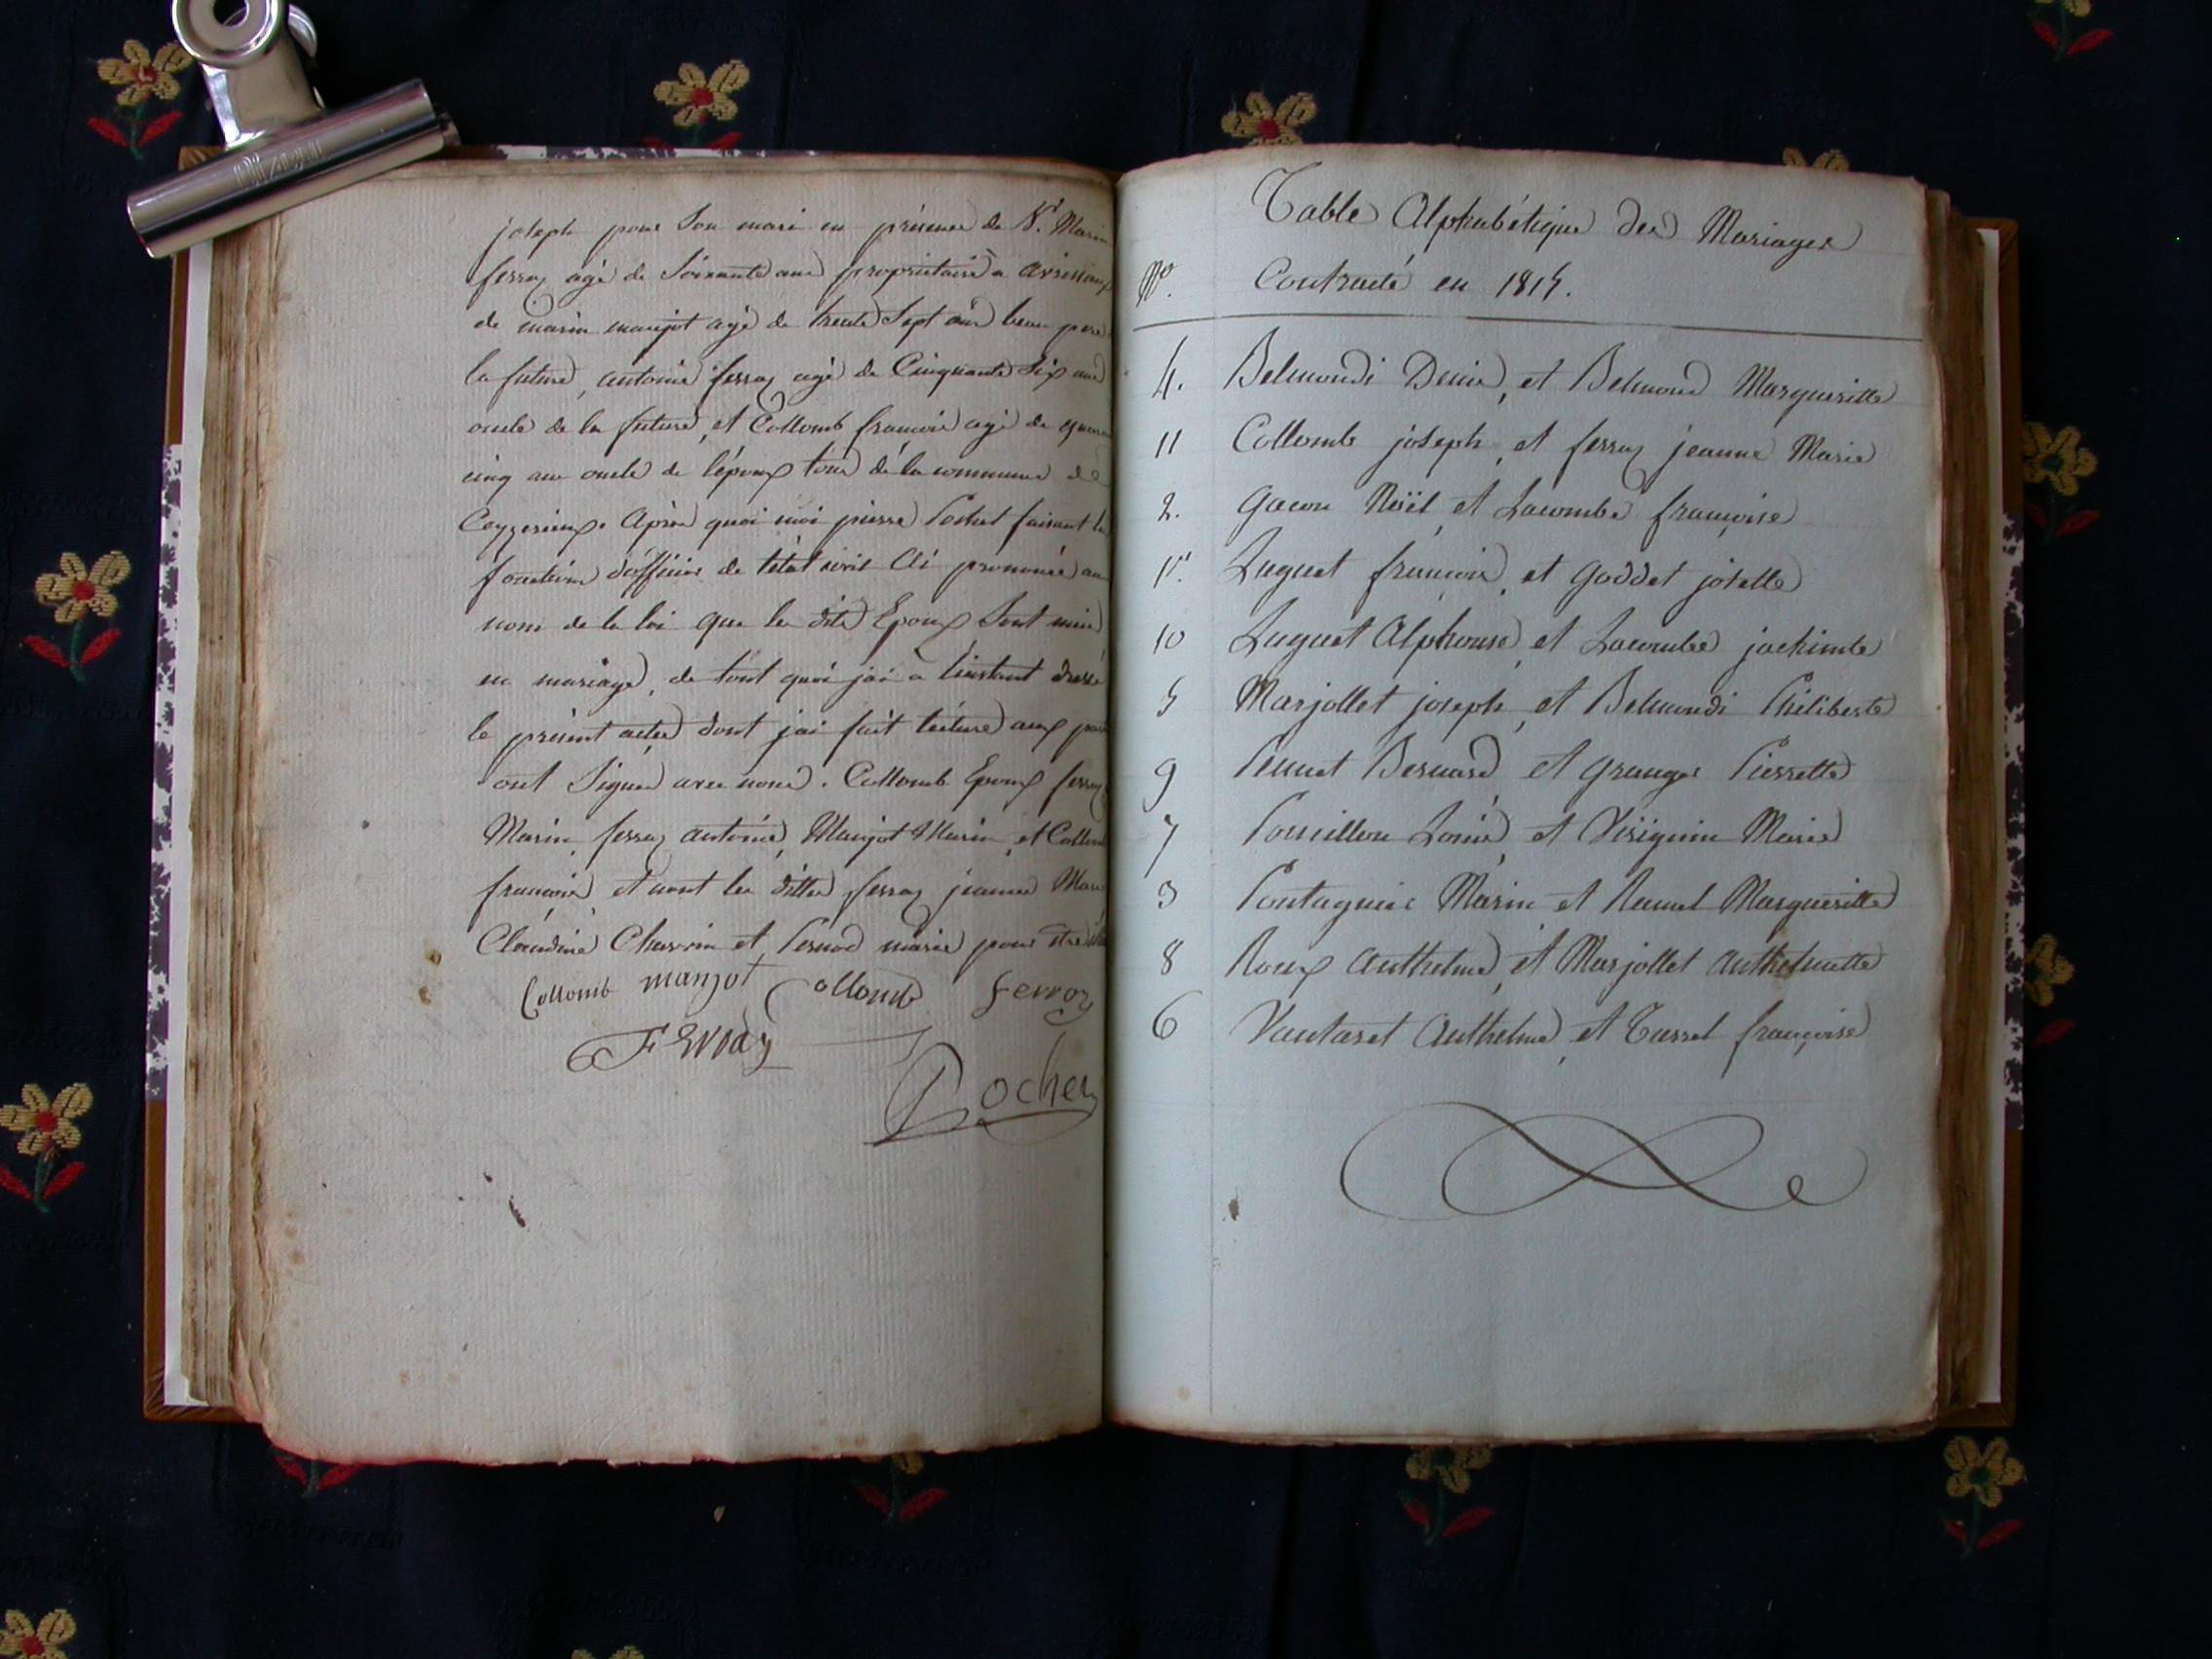 joseph pour Son mari en présence de Sr. Marin
ferroz agé de Soixante ans propriétaire a
de marin manjot agé de trente Sept ans beau pere
la future, antoine ferroz agé de Cinquante Six ans
oncle de la future, et Collomb francois agé de
cinq ans oncle de lépoux tous de la commune de
Ceyzerieux. Après quoi moi pierre Pochet faisant les
fonctions d'officier de létat civil ai prononcé au
nom de la loi que les dits Epoux Sont unis
en mariage, de tout quoi jai a linstant dressé
le présent acte, dont jai fait lecture aux
ont Signé avec nous. Collomb Epoux ferroz
Marin, ferroz antoine, Manjot Marin, et Collomb
francois et nont les dittes ferroz jeanne Marie
Claudine Charvin et Pernod marie pour
Collomb manjot Collomb ferroz
FERROZ
Pochet
Table Alphabétique des Mariages
No. Contracté en 1815.
4. Belmondi Denis, et Belmond Margueritte
11 Collomb joseph, et ferroz jeanne Marie
2. Gacon Noël, et Lacombe françoise
1r. Luguet françois, et Goddet josette
10 Luguet Alphonse, et Lacombe jachinte
5 Marjollet joseph, et Belmondi Philiberte
9 Pennet Bernard, et Granger Pierrette
7 Louis, et Marie
3 Marin, et Margueritte
8 Roux Anthelme, et Marjollet Anthelmette
6 Vautaret Anthelme, et Tassel françoise